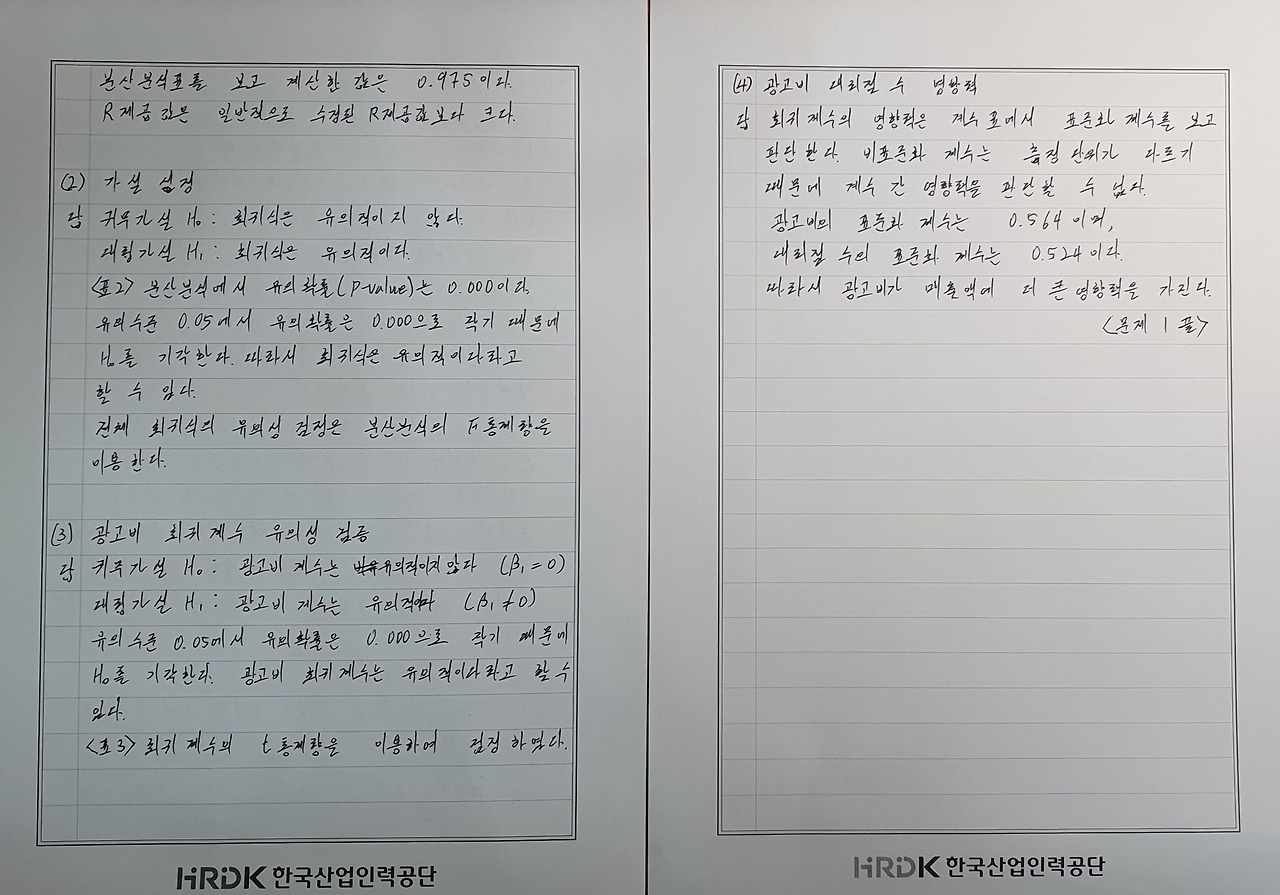 분산분석표를 보고 계산한 값은 0.975이다.
R제곱값은 일반적으로 수정된 R제곱값보다 크다.
(2) 가설 설정
답 귀무가설 H₀ : 회귀식은 유의적이지 않다.
대립가설 H₁ : 회귀식은 유의적이다.
<표2> 분산분석에서 유의확률(P-value)는 0.000이다.
유의수준 0.05에서 유의확률은 0.000으로 작기 때문에
H₀를 기각한다. 따라서 회귀식은 유의적이다라고
할 수 있다.
전체 회귀식의 유의성 검정은 분산분석의 F통계량을
이용한다.
(3) 광고비 회귀계수 유의성 검증
답 귀무가설 H₀ : 광고비 계수는 유의적이지 않다 (β₁ = 0)
대립가설 H₁ : 광고비 계수는 유의적이다 (β₁ ≠ 0)
유의수준 0.05에서 유의확률은 0.000으로 작기 때문에
H₀를 기각한다. 광고비 회귀계수는 유의적이다라고 할 수
있다.
<표3> 회귀계수의 t통계량을 이용하여 검정하였다.
HRDK 한국산업인력공단
(4) 광고비 대리점 수 영향력
답 회귀계수의 영향력은 계수표에서 표준화 계수를 보고
판단한다. 비표준화 계수는 측정단위가 다르기
때문에 계수 간 영향력을 판단할 수 없다.
광고비의 표준화 계수는 0.564이며,
대리점 수의 표준화 계수는 0.524이다.
따라서 광고비가 매출액에 더 큰 영향력을 가진다.
<문제 1 끝>
HRDK 한국산업인력공단